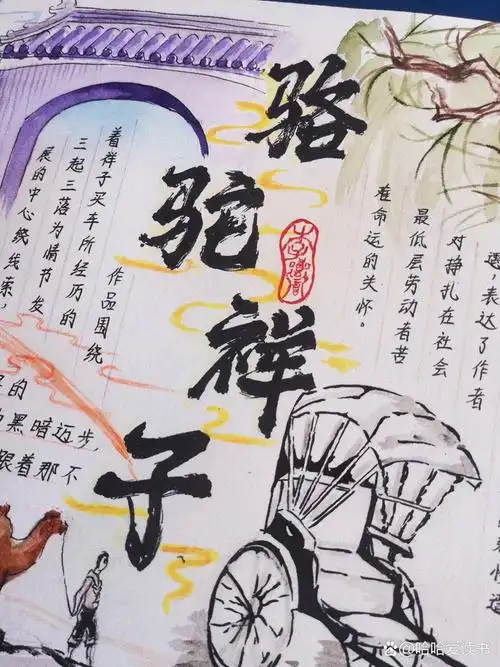 骆驼祥子
遇,表达了作者
对挣扎在社会
最低层劳动者苦
难命运的关怀。
作品围绕
着祥子买车所经历的
三起三落为情节发
展的中心绕线索,
的
黑暗迈步,
跟着那不
@哈哈爱读书